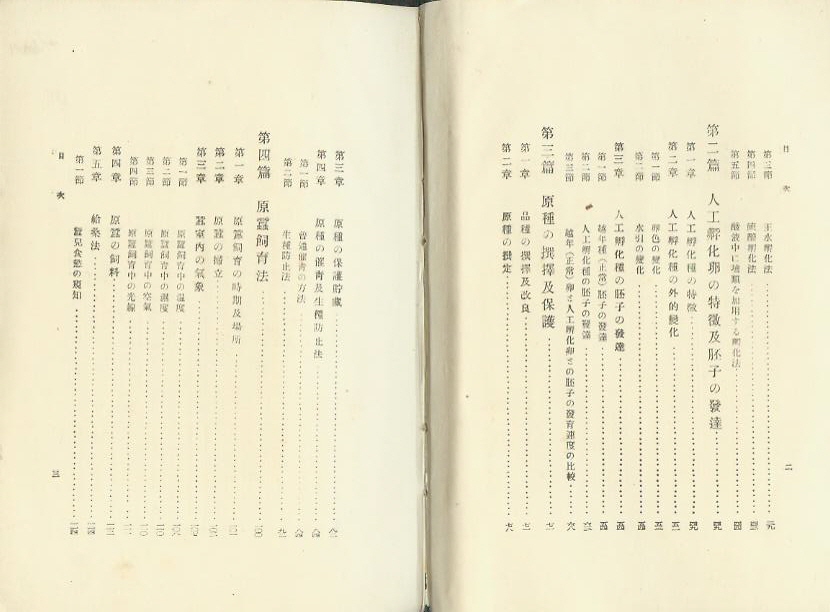 目次
二
第三節 王水孵化法
第四節 硫酸孵化法
第五節 酸液中に塩類を加用する孵化法
第二篇 人工孵化卵の特徴及胚子の發達
第一章 人工孵化種の特徴
第二章 人工孵化種の外的變化
第一節 卵色の變化
第二節 水引の變化
第三章 人工孵化種の胚子の發達
第一節 越年種(正常)胚子の發達
第二節 人工孵化種の胚子の發達
第三節 越年(正常)卵と人工孵化卵との胚子の發育速度の比較
第三篇 原種の撰擇及保護
第一章 品種の撰擇及改良
第二章 原種の撰定
第三章 原種の保護貯藏
第四章 原種の催青及生種防止法
第一節 普通催青の方法
第二節 生種防止法
第四篇 原蠶飼育法 一〇〇
第一章 原蠶飼育の時期及場所
第二章 原蠶の掃立
第三章 蠶室內の氣象
第一節 原蠶飼育中の溫度
第二節 原蠶飼育中の濕度
第三節 原蠶飼育中の空氣
第四節 原蠶飼育中の光線
第四章 原蠶の飼料
第五章 給桑法
第一節 蠶兒食慾の察知
目次
三